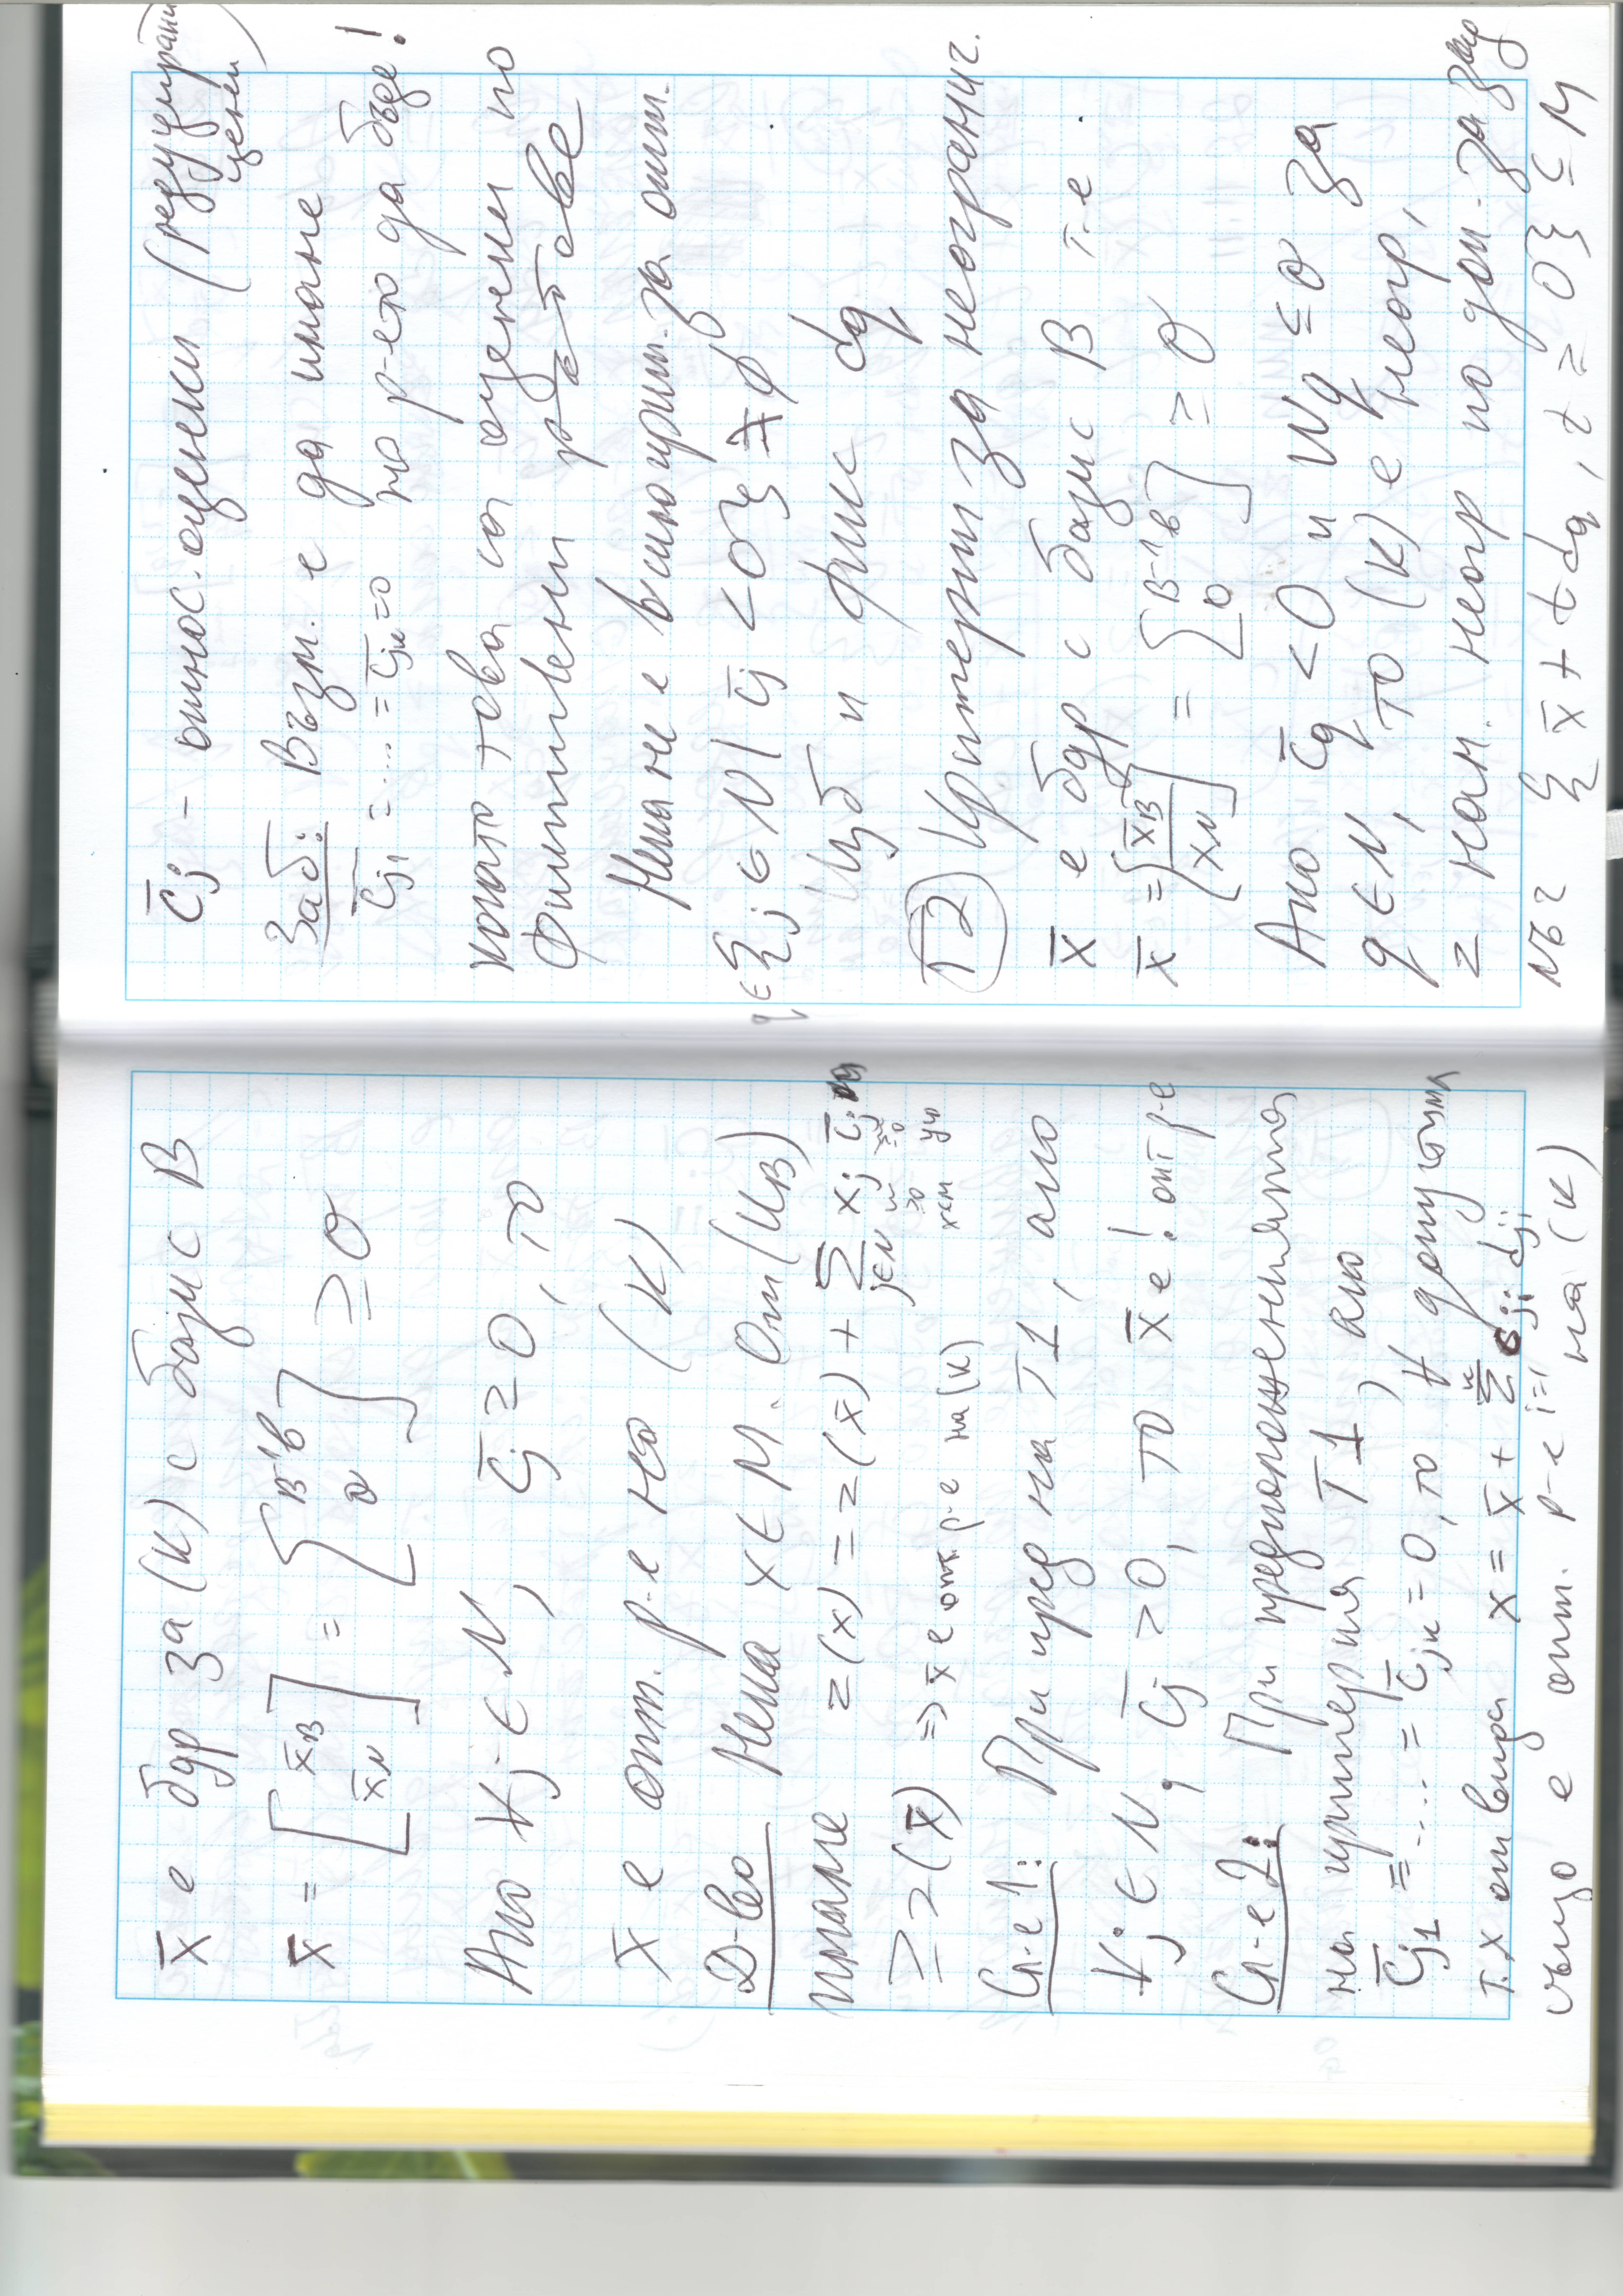 x̄ е бдр за (К) с базис B
x̄ = [x̄_B x̄_N] = [B⁻¹b 0] ≥ 0
Ако ∀j ∈ N, c̄j ≥ 0, то
x̄ е опт. р-е на (К)
Д-во Нека x ∈ M. От (КВ)
имаме z(x) = z(x̄) + Σ_{j∈N} xj c̄j
≥ z(x̄) ⇒ x̄ е опт. р-е на (К)
Сл-е 1: При пред на Т1, ако
∀j ∈ N, c̄j > 0, то x̄ е ! опт р-е
Сл-е 2: При предположенията
на критерия Т1, ако
c̄j1 = .... = c̄jk = 0, то ∀ допустима
т. x от вида x = x̄ + Σ_{i=1}^{k} dji
също е опт. р-е на (К
c̄j - относ. оценки (редуцирани цени)
Заб: Възм. е да имаме
c̄j1 = .... = c̄jk = 0 но р-ето да бъде !
когато това са оценени по
фиктивени р-тове
Нека не е в сила крит. за опт.
q ∈ {j ∈ N | c̄j < 0} ≠ ∅
Изб и фикс dq
Т2 Критерий за неогранич.
x̄ е бдр с базис B т-е
x̄ = [x̄_B x_N] = [B⁻¹b 0] ≥ 0
Ако c̄q < 0 и Wq ≤ 0 за
q ∈ N, то (К) е неогр,
z нам. неогр по доп. за
лъч { x̄ + t dq, t ≥ 0} ⊆ M